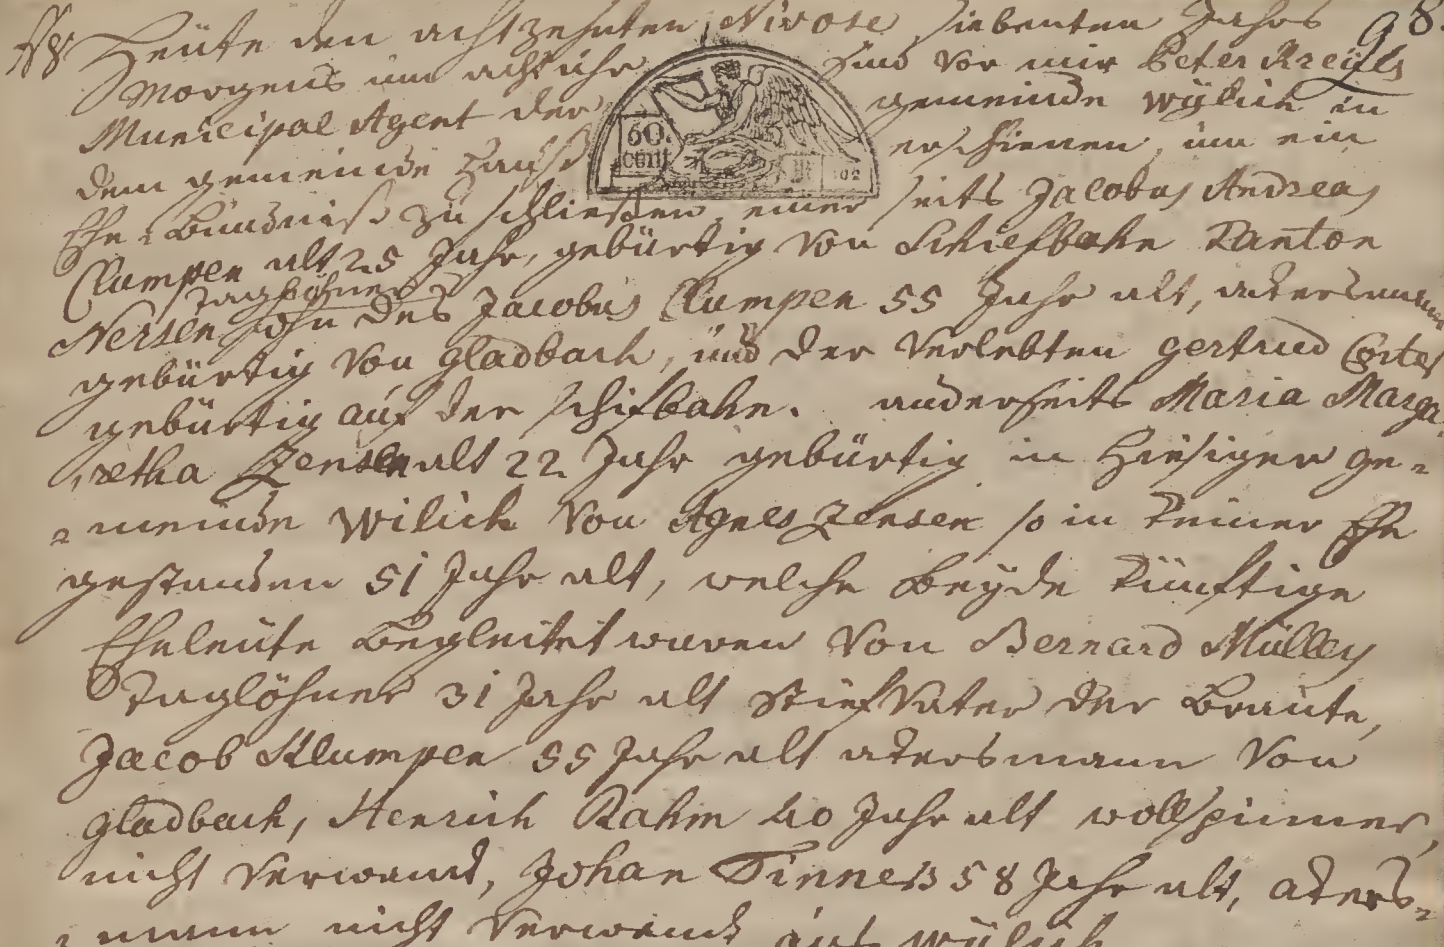 Heüte den achtzehnten Nivose, siebenten Jahrs 98
Morgens um acht uhr sind vor mir Peter Kreüls
Municipal Agent der gemeinde Wÿlich in
dem gemeinde Hauß erschienen, um ein
Ehe-Bündniß zu schließen, einer seits Jacobus Andreas
Clumpen alt 25 Jahr, gebürtig von Schiefbahn Kanton
Taglöhner
Nersen sohn des Jacobus Clumpen 55 Jahr alt, akersmann
gebürtig von gladbach, und der verlebten gertrud Cortes
gebürtig auf der schifbahn. anderseits Maria Marga-
retha Zensen alt 22 Jahr gebürtig in hiesiger ge-
meinde Wilich von Agnes Zensen so in keiner Ehe
gestanden 51 Jahr alt, welche beÿde künftige
Eheleüte begleitet waren von Bernard Müller
Taglöhner 31 Jahr alt stiefvater der braute,
Jacob Klumpen 55 Jahr alt akersmann von
gladbach, Henrich Rahm 40 Jahr alt wollspinner,
nicht verwand, Johan Tinness 58 Jahr alt, akers-
mann nicht verwand aus wÿlich
60 cent